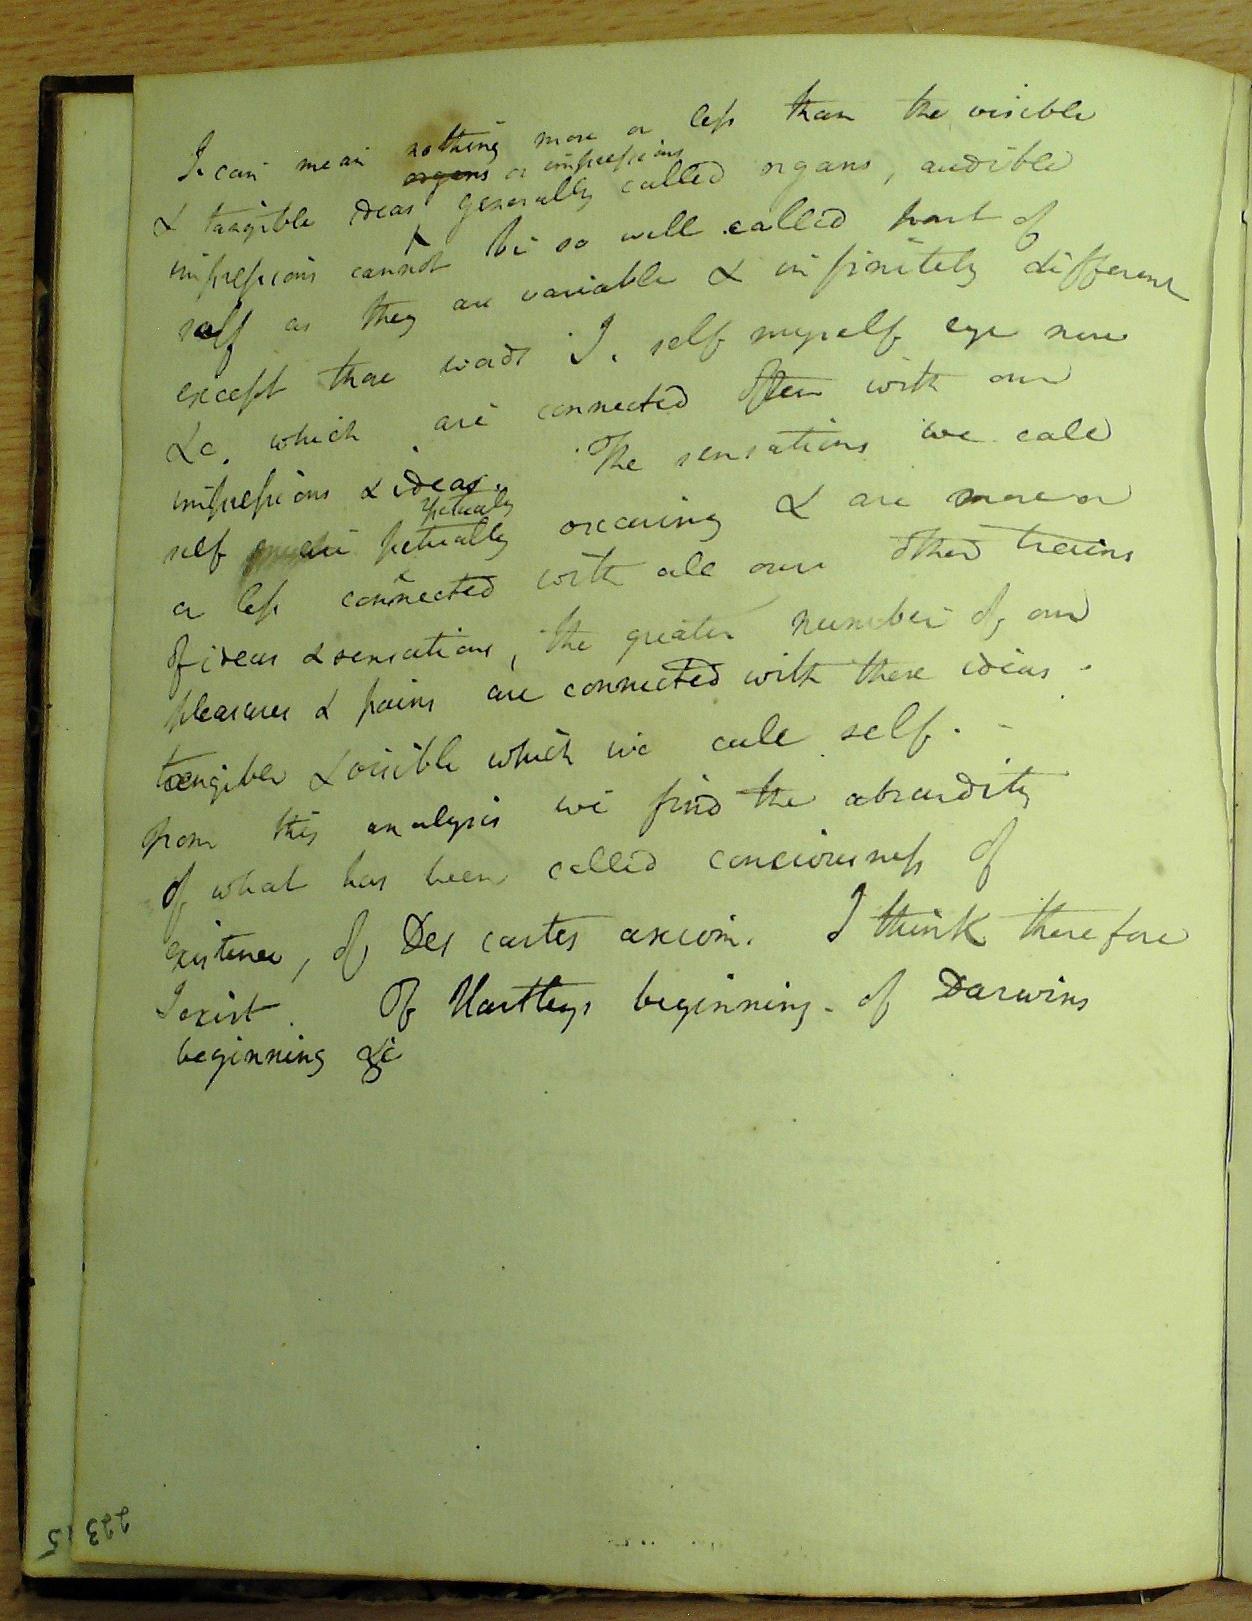 I can mean nothing more or less than the visible
organs or impressions
& tangible ideas generally called organs, audible
impressions cannot be so well called part of
self as they are variable & infinitely different
except those words I. self myself eye nose
&c. which are connected often with our
impressions & ideas. The sensations we call
petually
self are petually occuring & are more or
or less connected with all our other trains
of ideas & sensations, the greater number of our
pleasures & pains are connected with these ideas
tangible & visible which we call self. -
from this analysis we find the absurdity
of what has been called conciousness of
existence, of Des cartes axiom. I think therefore
I exist. Of Hartleys beginning - of Darwins
beginning &c
223
5